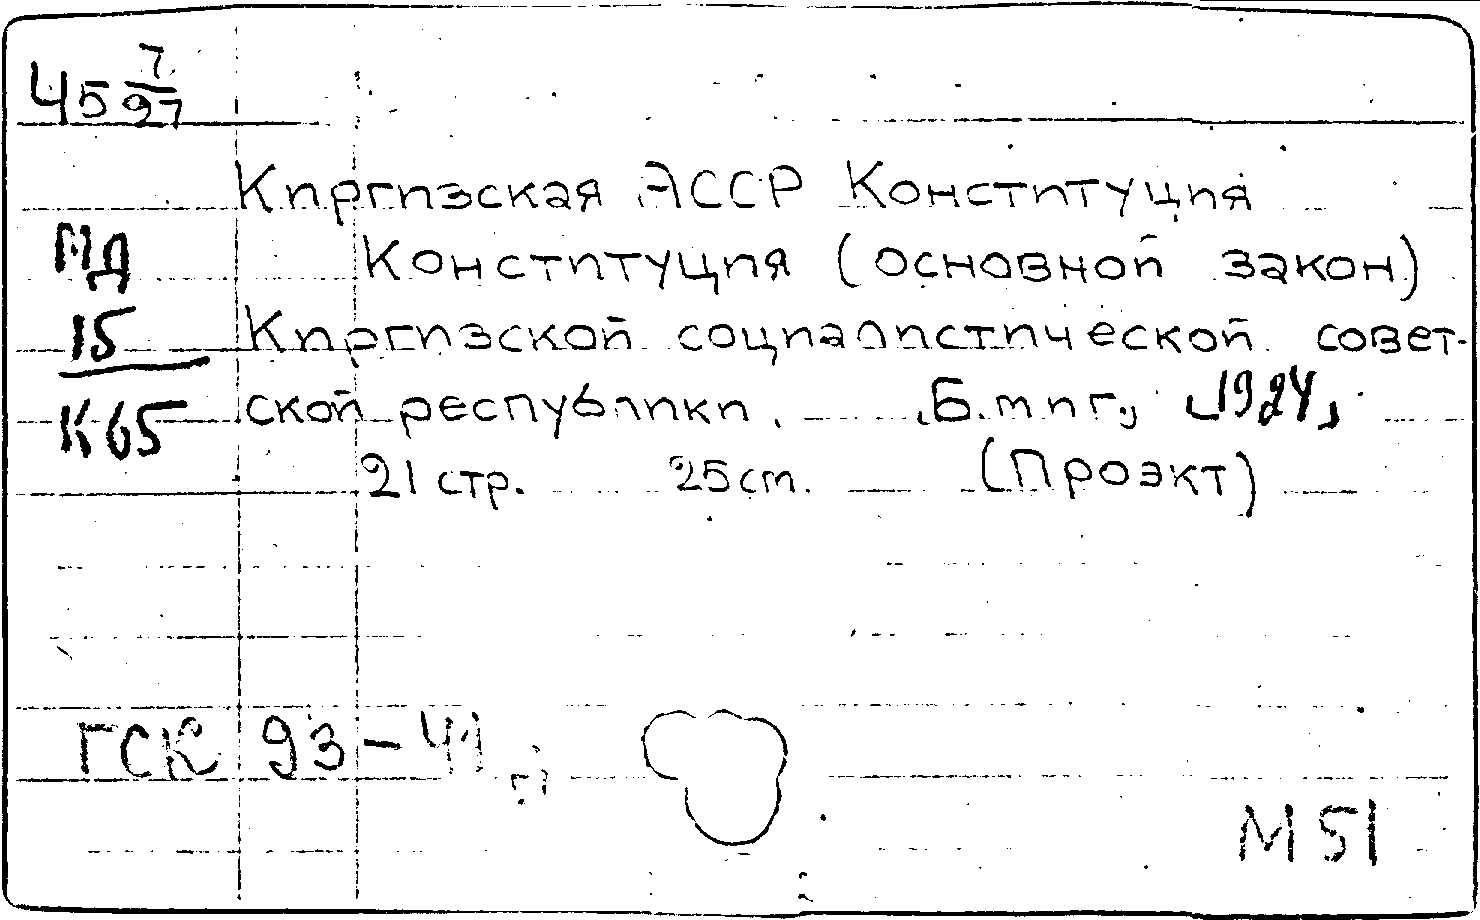 45 7/97
Киргизская АССР Конституция
МД
Конституция (основной закон)
15
Киргизской социалистической совет-
К65
ской республики. Б.м и г., [1924]
21 стр. 25 cm. (Проэкт)
ГСК 93-41
М 51